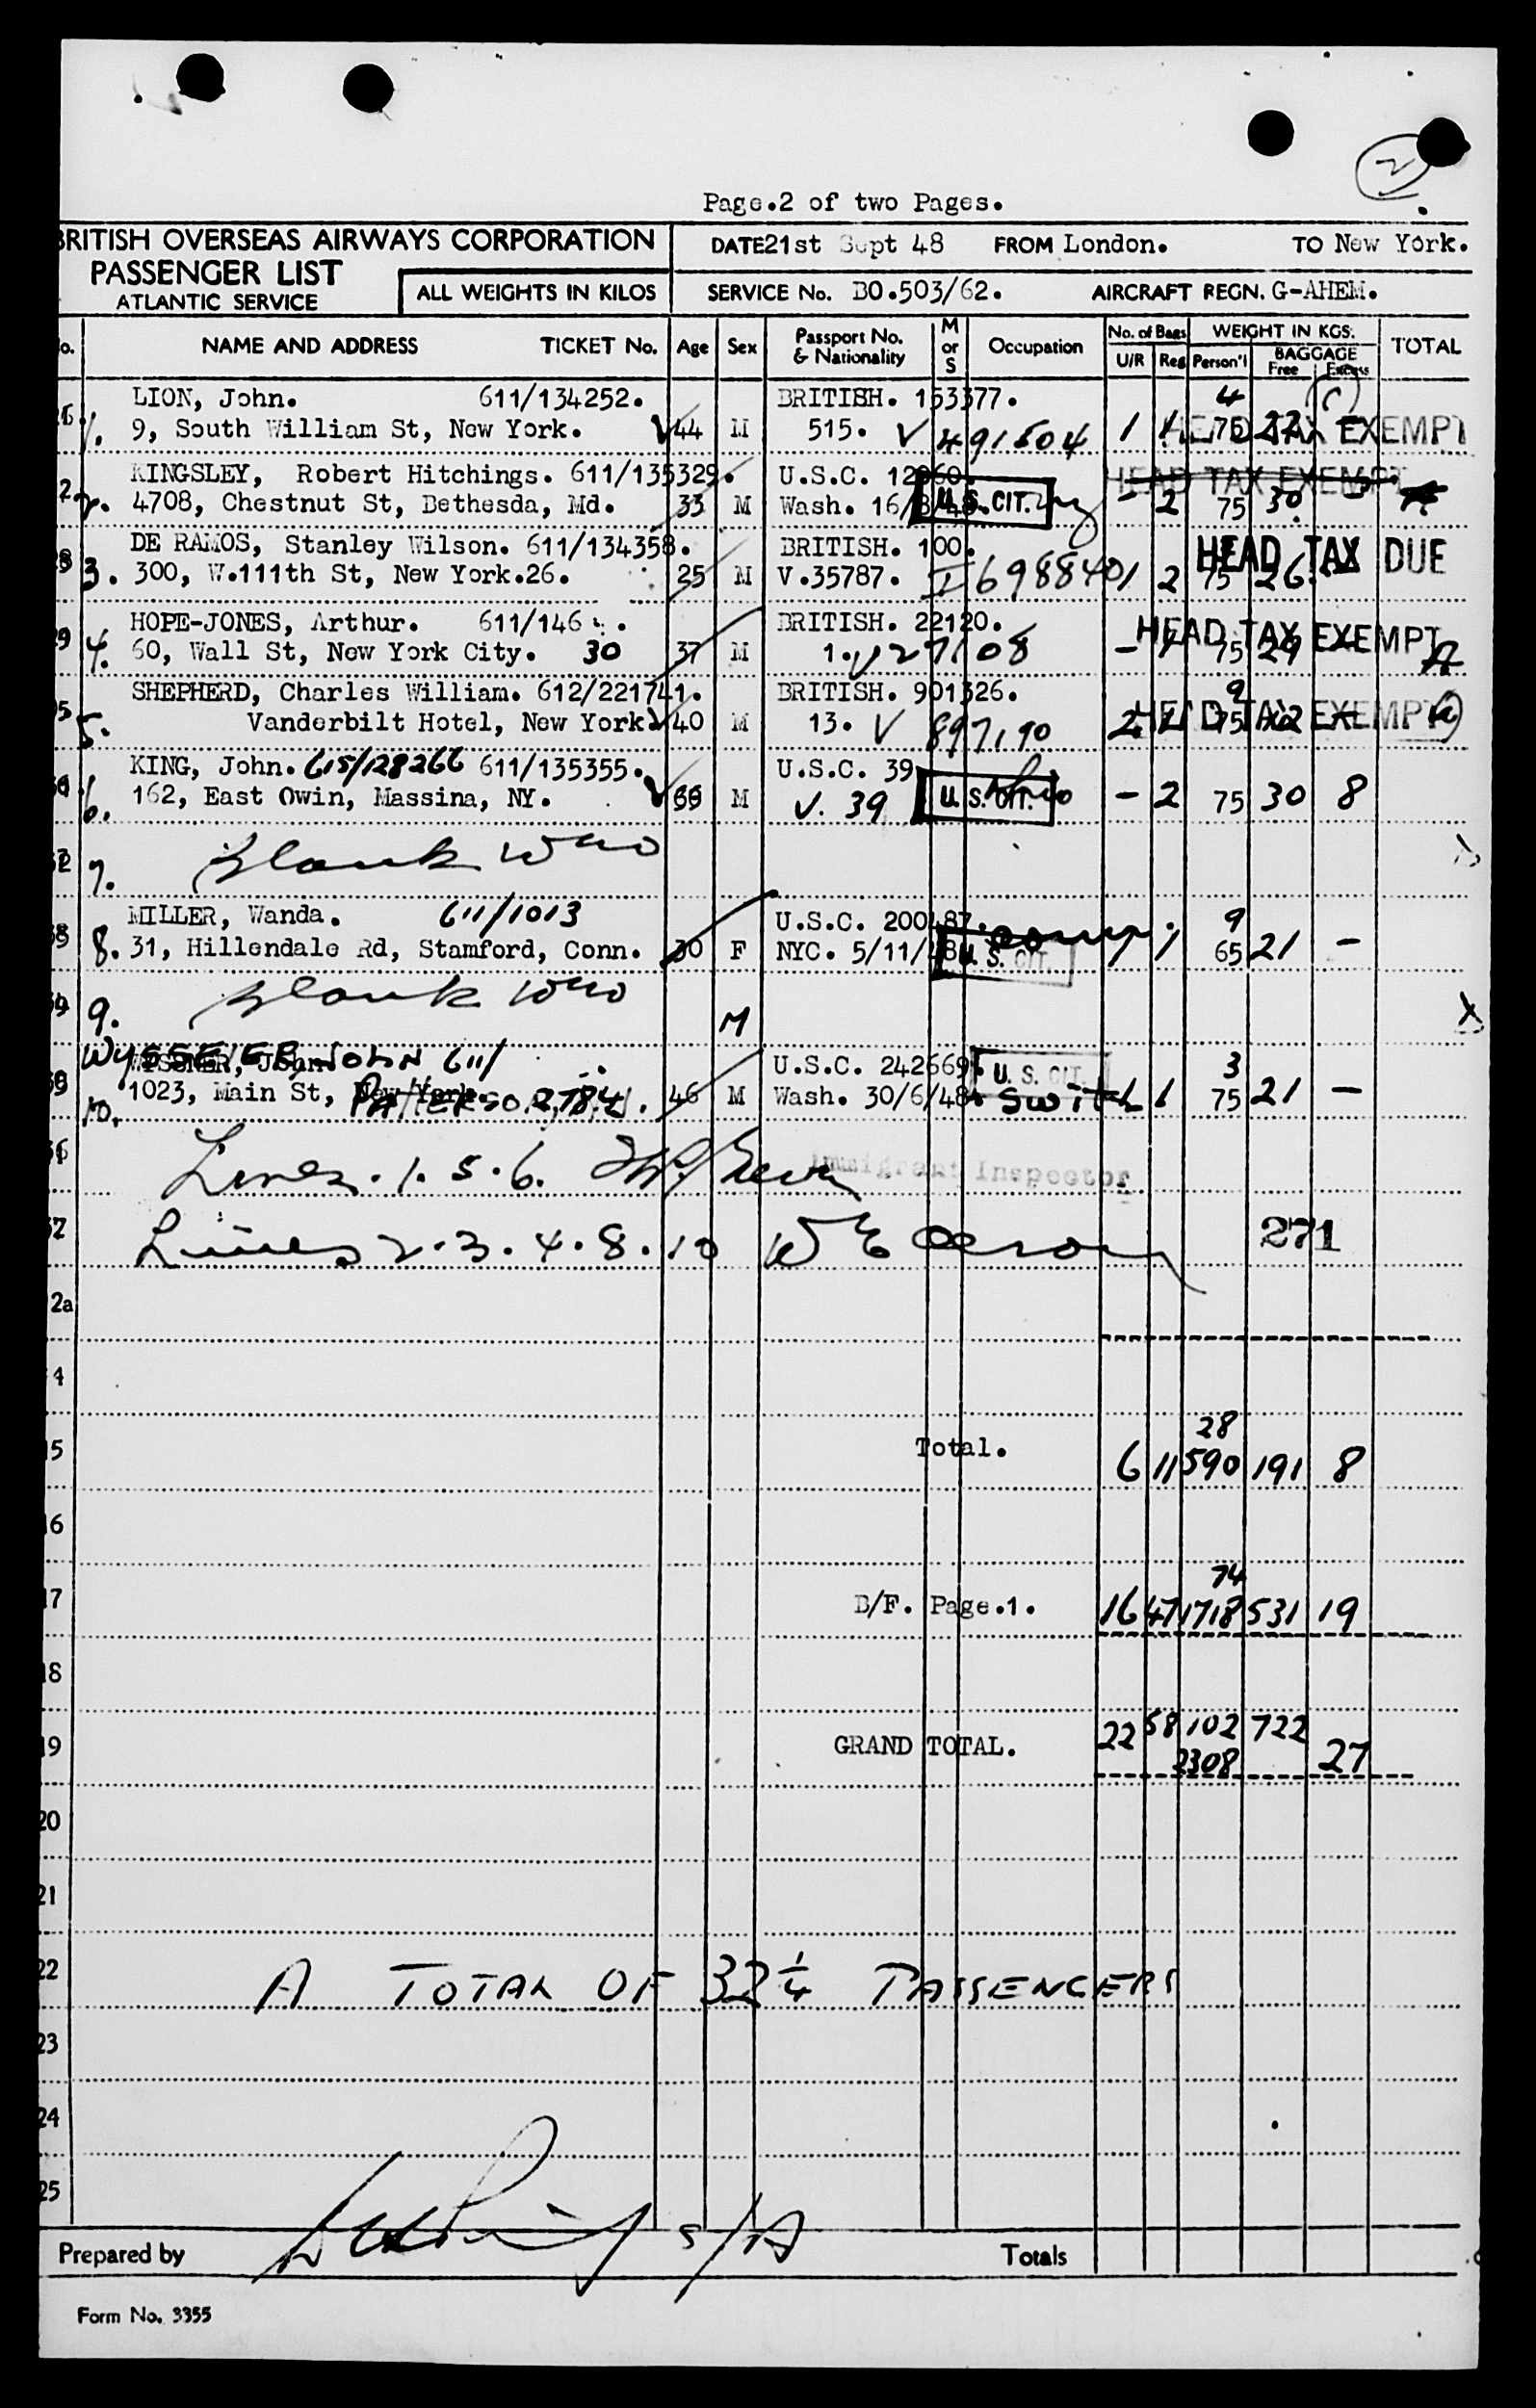 2
Page.2 of two Pages.
BRITISH OVERSEAS AIRWAYS CORPORATION
PASSENGER LIST
ATLANTIC SERVICE
ALL WEIGHTS IN KILOS
DATE 21st Sept 48 FROM London. TO New York.
SERVICE No. BO.503/62. AIRCRAFT REGN. G-AHEM.
NAME AND ADDRESS TICKET No. Age Sex Passport No. & Nationality M or S Occupation No. of Bags U/R Reg WEIGHT IN KGS. Person'l BAGGAGE Free Excess TOTAL
LION, John. 611/134252. BRITISH. 153377. 4
1. 9, South William St, New York. 44 M 515. V 491504 1 1 75 22 HEAD TAX EXEMPT
KINGSLEY, Robert Hitchings. 611/135329. U.S.C. 12060. HEAD TAX EXEMPT
2. 4708, Chestnut St, Bethesda, Md. 33 M Wash. 16/8/48. U. S. CIT. - 2 75 30
DE RAMOS, Stanley Wilson. 611/134358. BRITISH. 100. HEAD TAX DUE
3. 300, W.111th St, New York.26. 25 M V.35787. I 698840 1 2 75 26
HOPE-JONES, Arthur. 611/146 BRITISH. 22120. HEAD TAX EXEMPT
4. 60, Wall St, New York City. 30 37 M 1. V 27108 - 1 75 29
SHEPHERD, Charles William. 612/221741. BRITISH. 901326. 9
5. Vanderbilt Hotel, New York 40 M 13. V 897190 2 1 75 12 HEAD TAX EXEMPT
KING, John. 615/128266 611/135355. U.S.C. 39
6. 162, East Owin, Massina, NY. M V. 39 U. S. CIT. Ohio - 2 75 30 8
7. Blank
MILLER, Wanda. 611/1013 U.S.C. 200487. Conn. 9
8. 31, Hillendale Rd, Stamford, Conn. 30 F NYC. 5/11/48 U. S. CIT. 1 1 65 21 -
9. Blank M
WYSSEIER, JOHN 611/ U.S.C. 242669. U. S. CIT. 3
10. 1023, Main St, New York. PATTERSON, N.J. 2784. 46 M Wash. 30/6/48. Switz 1 1 75 21 -
Lines. 1. 5. 6. Immigrant Inspector
Lines 2. 3. 4. 8. 10 271
2a
14
28
15 Total. 6 11 590 191 8
16
74
17 B/F. Page.1. 16 47 1718 531 19
18
19 GRAND TOTAL. 22 58 102 722
2308 27
20
21
22 A TOTAL OF 32 1/4 PASSENGERS
23
24
25
Prepared by S/A Totals
Form No. 3355